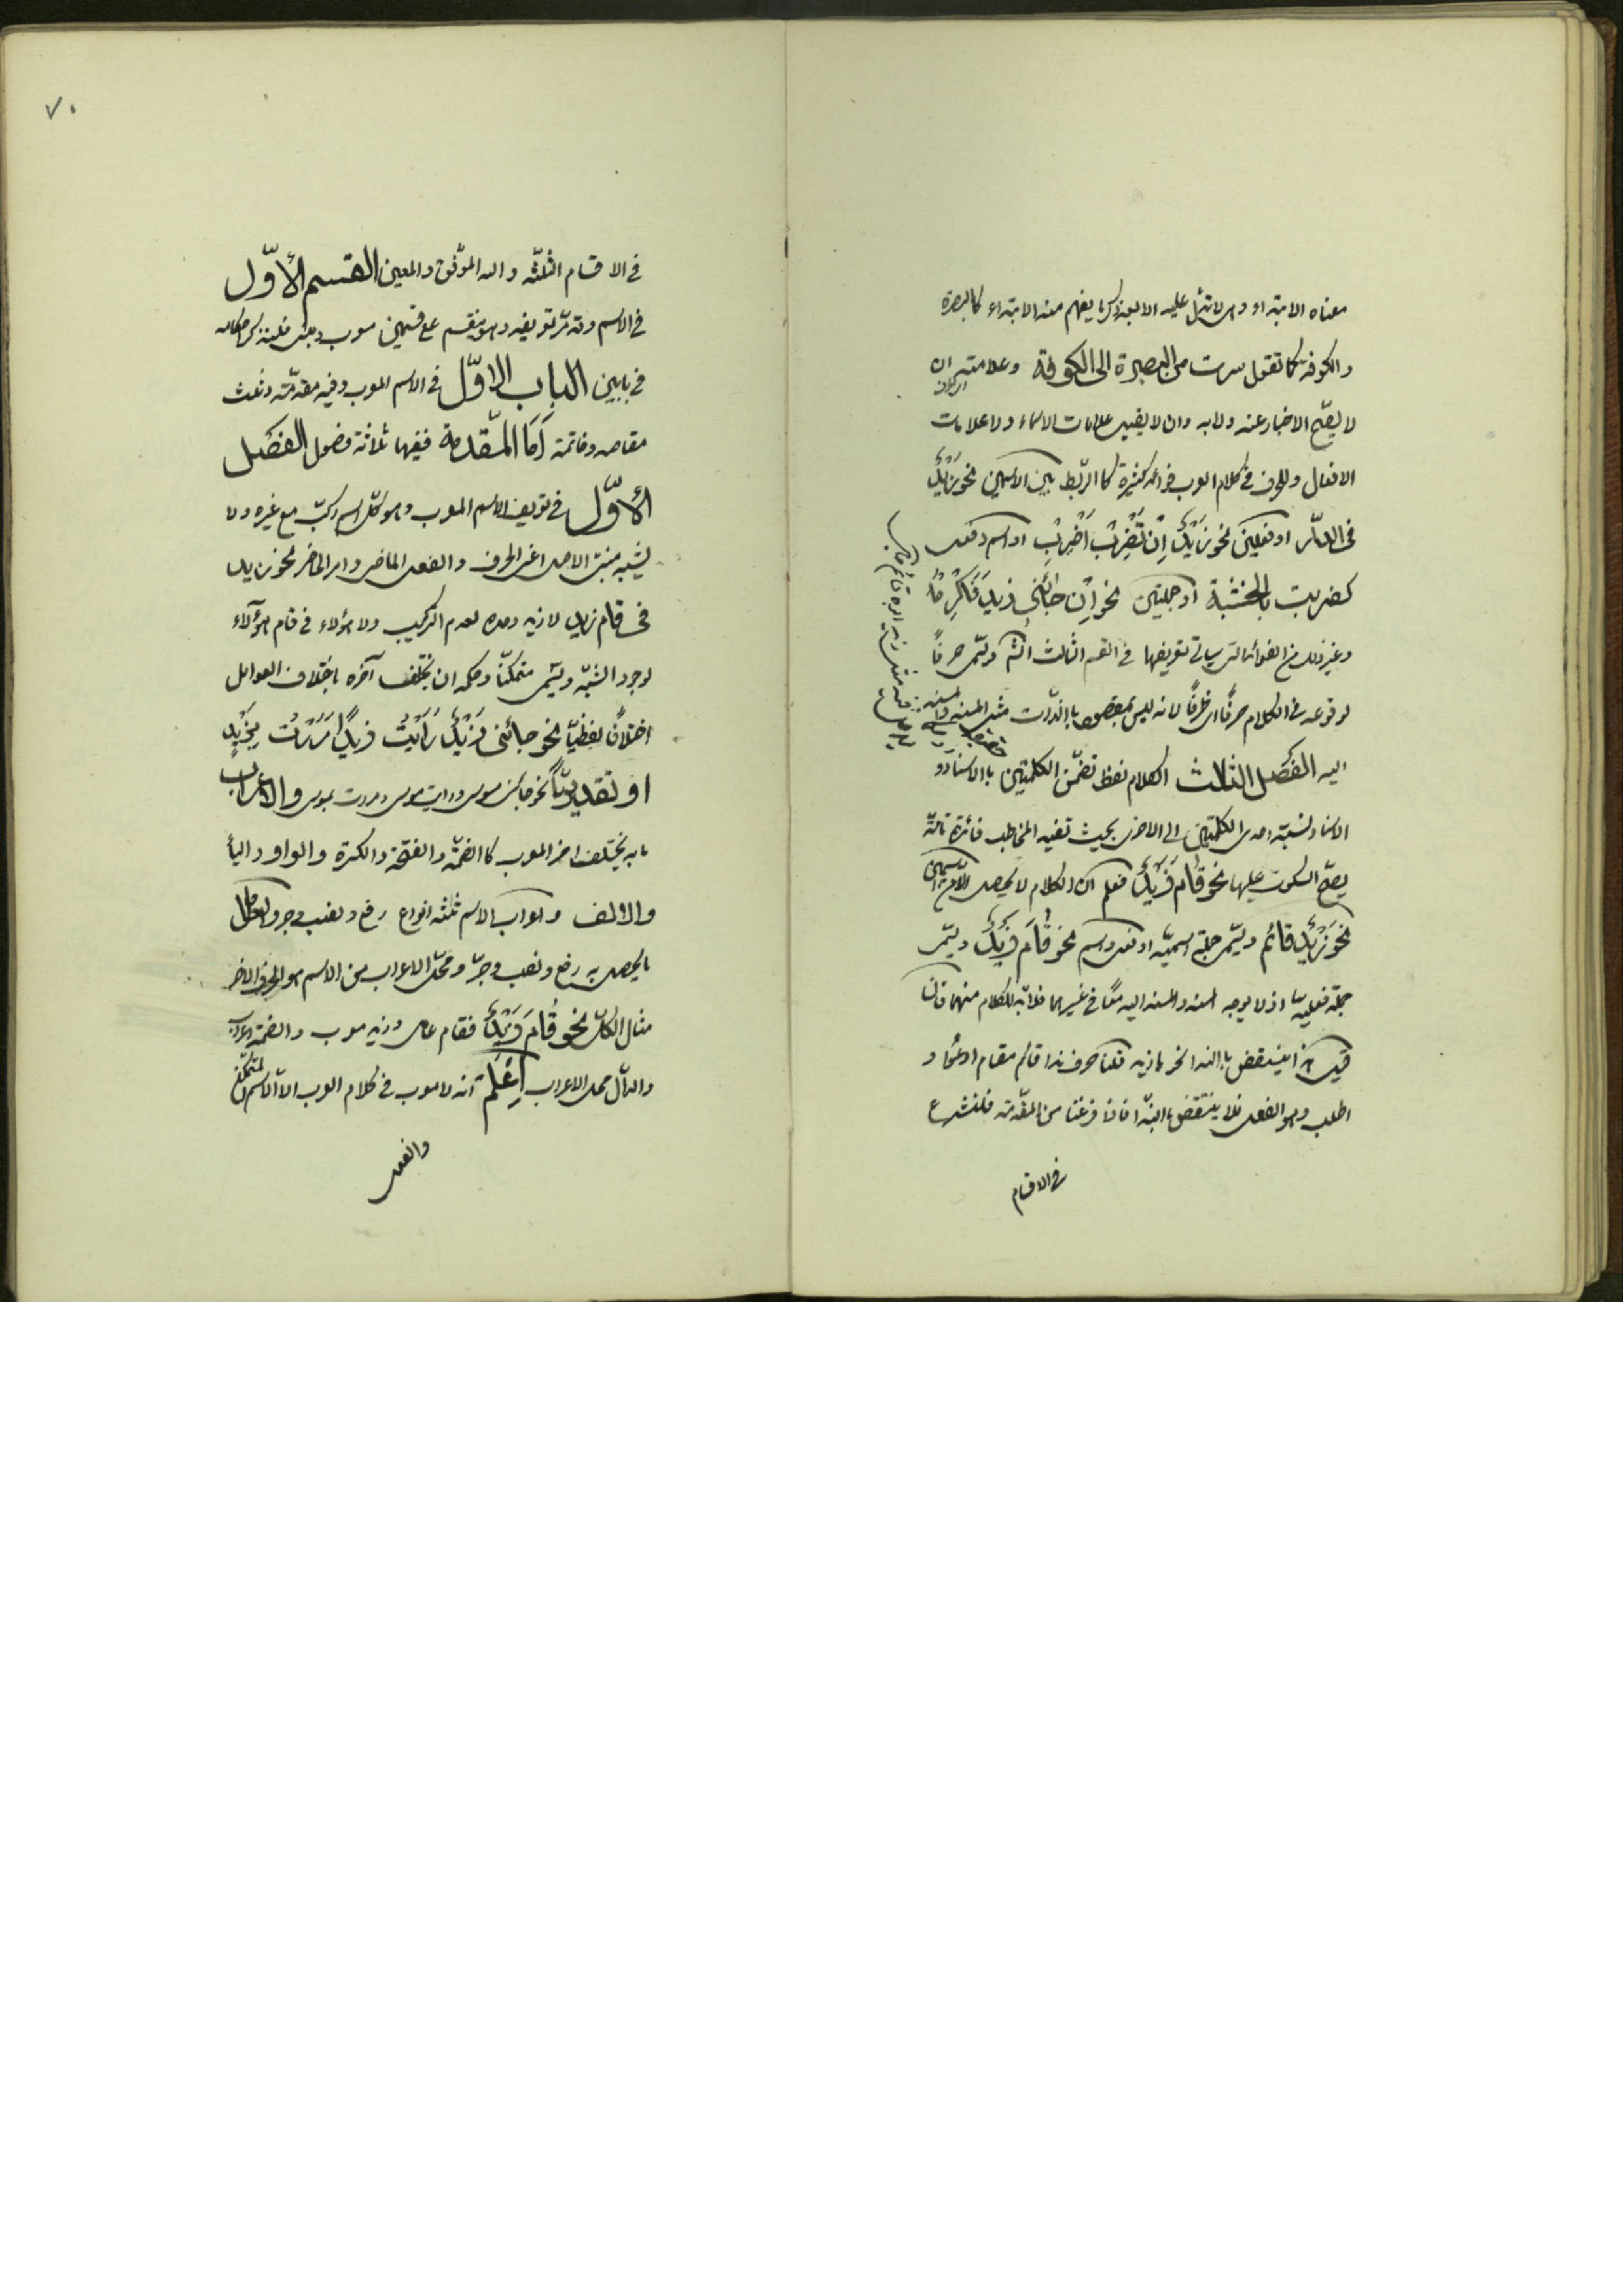 معناه الابتداء وهي لا تدل عليه الا بعد ذكر ما يفهم منه الابتداء كالبصرة
والكوفة كما تقول سرت من البصرة الى الكوفة وعلامته ان
لا يصح الاخبار عنه ولا به وان لا يقبل علامات الاسماء ولا علامات
الافعال وللحرف في كلام العرب فوائد كثيرة كالربط بين الاسمين نحو زَيْدٌ
فى الدّار او فعلين نحو زَيْدٌ اِنْ تَضْرِبْ اَضْرِبْ او اسم وفعل
كضربت بالخشبة او جملتين نحو اِنْ جائَنى زيد فَاَكْرِمْهُ
وغير ذلك من الفوائد التى سياتى تعريفها فى القسم الثالث انشم ويسمّى حرفاً
لوقوعه فى الكلام حرفًا اى طرفًا لانه ليس بمقصود بالذّات مثل المسند والمسند
اليه الفَصل الثالث الكلام لفظ تضمّن الكلمتين بالاسناد و
الاسناد نسبة احدى الكلمتين الى الاخرى بحيث تفيد المخاطب فائدة تامّة
يصحّ السكوت عليها نحو قام زَيْدٌ فعلم ان الكلام لا يحصل الّا من اسمين
نحو زَيْدٌ قائم ويسمّى جملة اسميّة او فعل واسم نحو قَامَ زَيْدٌ ويسمّى
جملة فعليّة اذ لا يوجد المسند والمسند اليه معًا فى غيرهما فلا بد للكلام منهما فان
قيل هذا ينتقض بالنداء نحو يا زيد قلنا حرف نداء قائم مقام ادعوا و
اطلب وهو الفعل فلا ينتقض بالندّاء فاذا فرغنا من المقدّمة فلنشرع
فى الاقسام
٧٠
فى الاقسام الثلثة والله الموفّق والمعين القسم الأوّل
فى الاسم وقد مرّ تعريفه وهو ينقسم على قسمين معرب ومبنى فلنذكر احكامه
فى بابين الباب الاوّل فى الاسم المعرب وفيه مقدّمة وثلث
مقاصد وخاتمة اَمّا المقدمة ففيها ثلاثة فصول الفَصل
الأوّل فى تعريف الاسم المعرب وهو كلّ اسم ركّب مع غيره ولا
يشبه مبنىّ الاصل اعنى الحرف والفعل الماضى وامر الحاضر نحو زيد
فى قام زيد لا زيد وحده لعدم التركيب ولا هؤلاء فى قام هؤلاء
لوجود الشبه ويسمّى متمكنّا وحكمه ان يختلف آخره باختلاف العوامل
اختلافًا لفظيّا نحو جائنى زَيْدٌ رَاَيْتُ زيدًا مَرَرْتُ بِزَيْدٍ
او تقديريّاً نحو جائنى موسى ورايت موسى ومررت بموسى والاعراب
ما به يختلف اخر المعرب كالضمّة والفتحة والكسرة والواو والياء
والالف واعراب الاسم ثلثة انواع رفع ونصب وجر والعامل
ما يحصل به رفع ونصب وجرّ ومحلّ الاعراب من الاسم هو الحرف الاخر
مثال الكلّ نحو قَامَ زَيْدٌ فقام عامل وزيد معرب والضمة اعراب
والدّال محل الاعراب اِعْلَمْ انه لا معرب فى كلام العرب الّا الاسم المتمكّن
والفعل